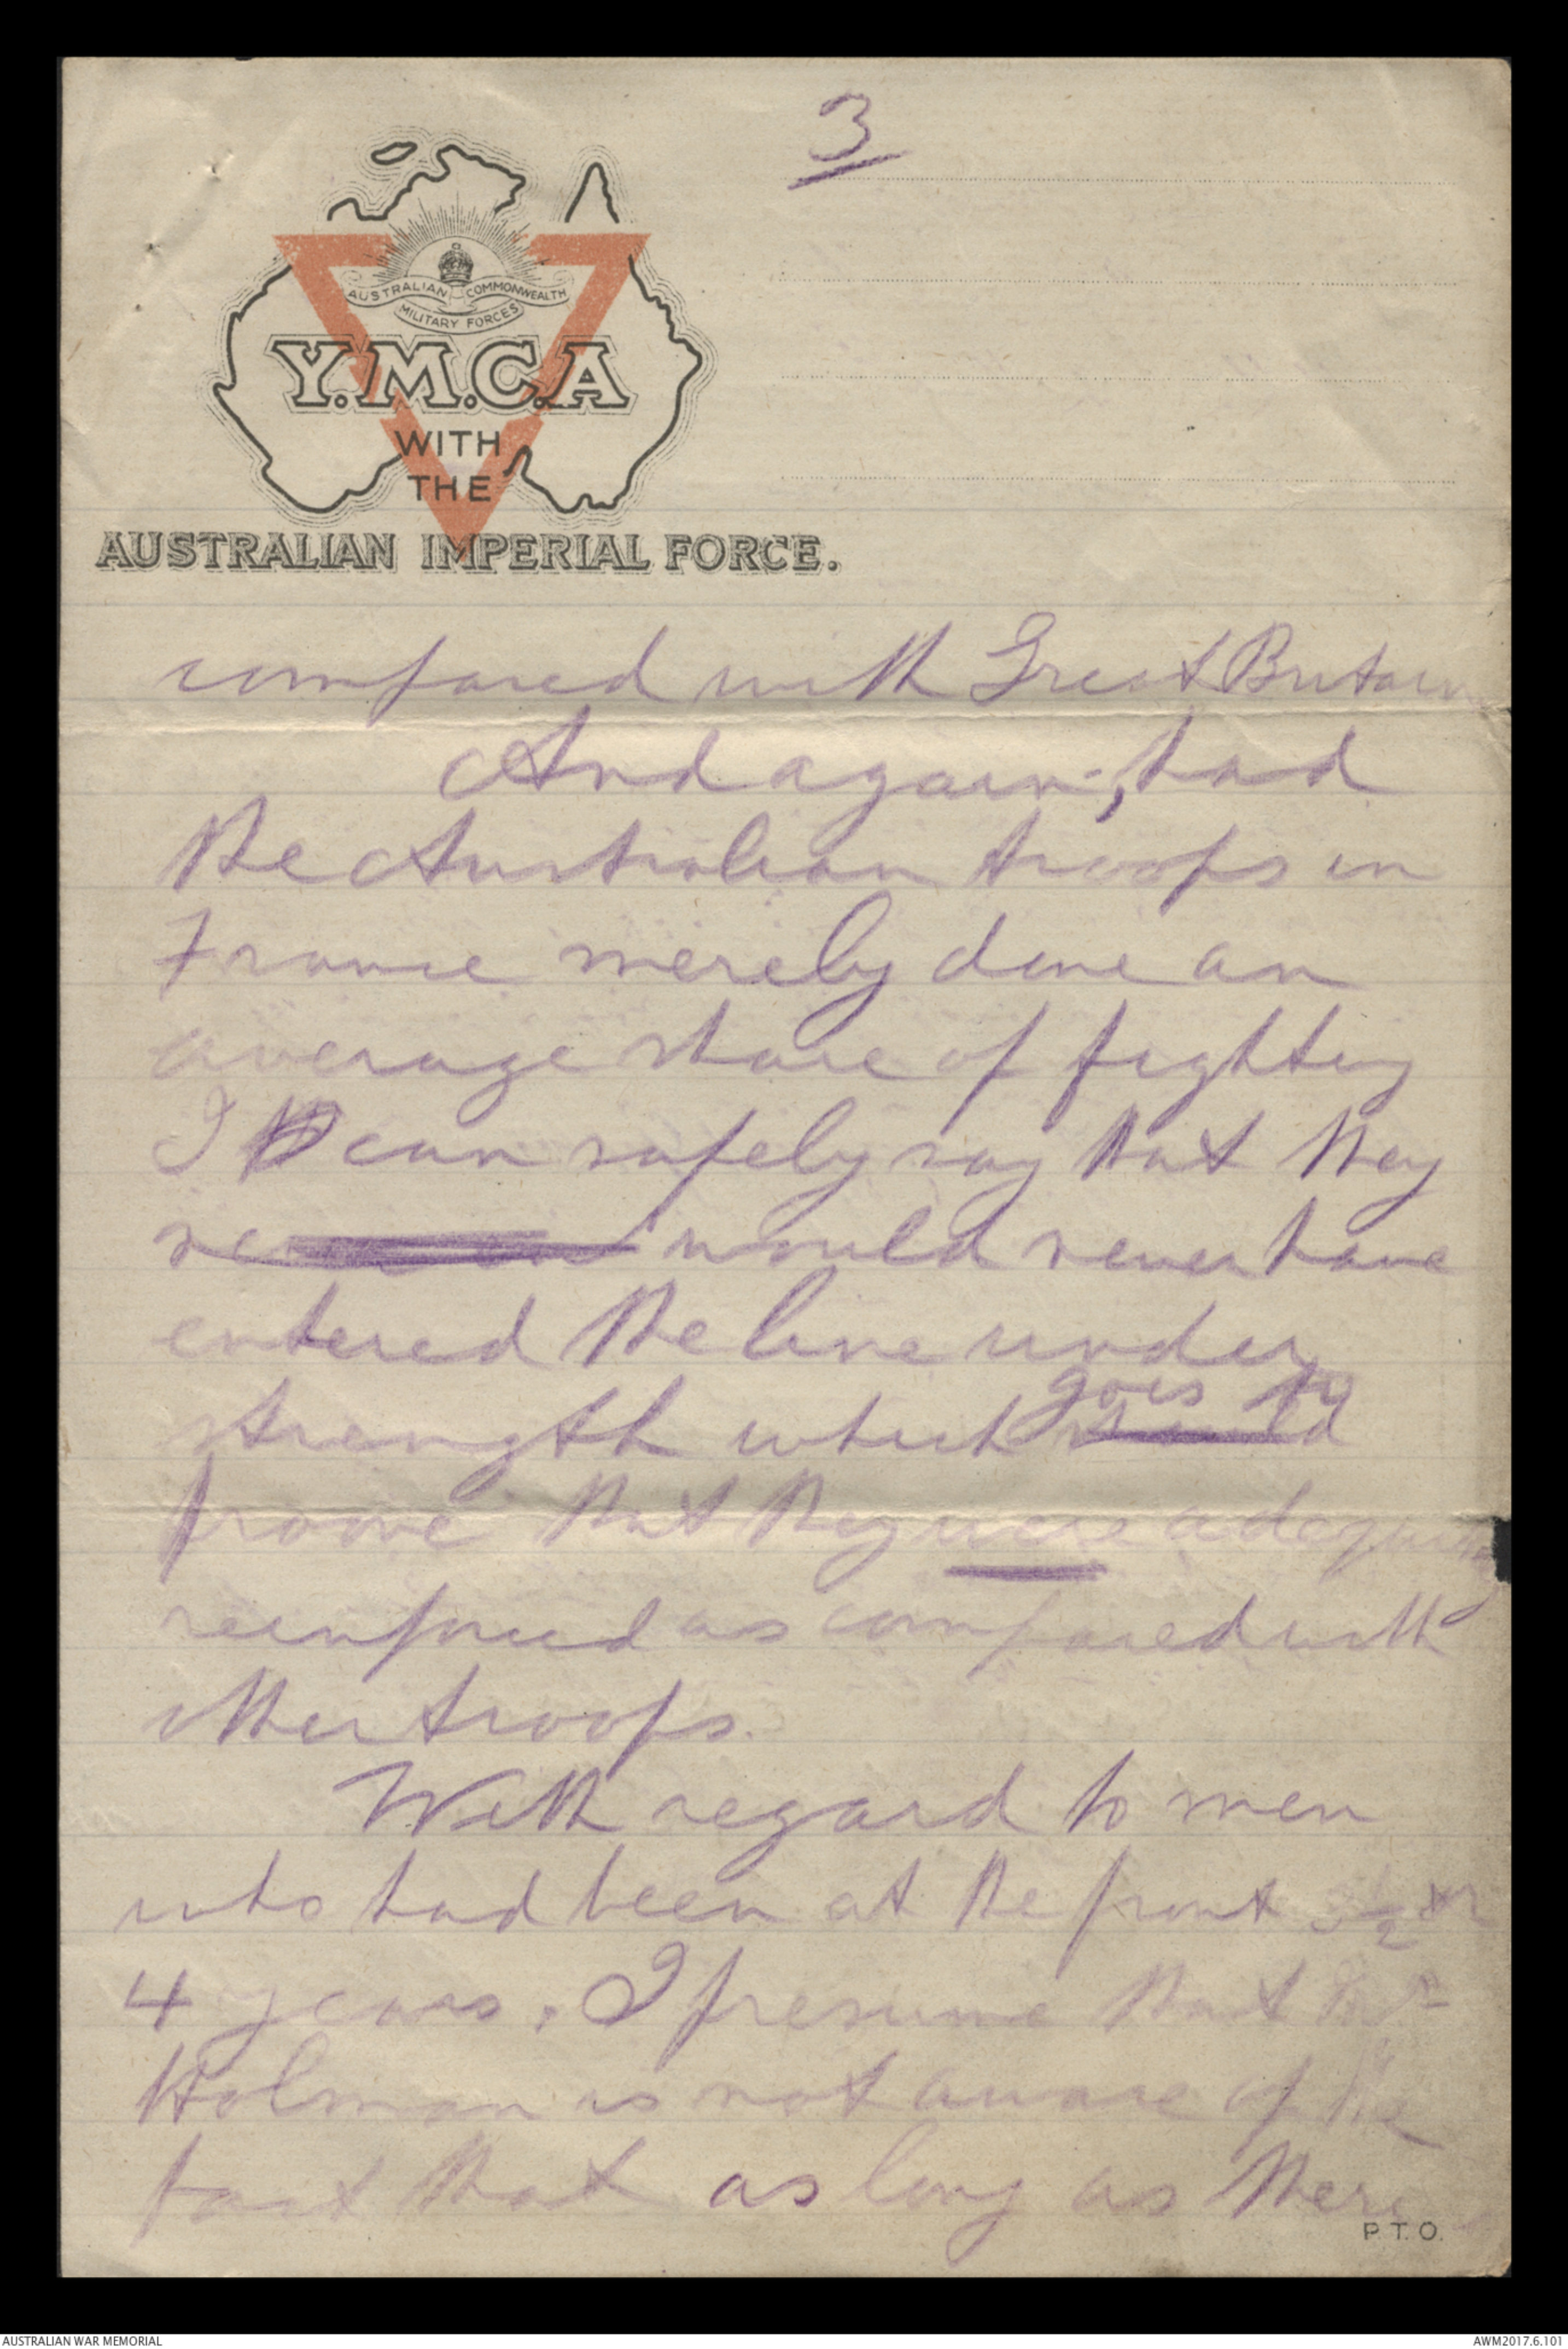 3
AUSTRALIAN COMMONWEALTH
MILITARY FORCES
Y.M.C.A
WITH
THE
AUSTRALIAN IMPERIAL FORCE.
compared with Great Britain
And again, had
the Australian troops in
France merely done an
average share of fighting
I can safely say that they
would never have
entered the line under
strength which goes to
proove that they were adequately
reinforced as compared with
other troops.
With regard to men
who had been at the front 3½ or
4 years. I presume that Mr
Holman is not aware of the
fact that as long as there
P.T.O.
AUSTRALIAN WAR MEMORIAL
AWM2017.6.101